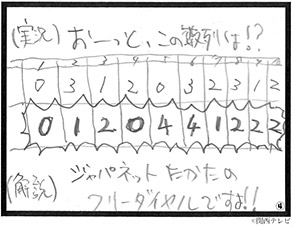 (実況) おーっと、この数列は!?
1 2 3 4 5 6 7 8 9
0 3 1 2 0 3 2 3 1 2
0 1 2 0 4 4 1 2 2 2
(解説) ジャパネットたかたの
フリーダイヤルですね!!
©関西テレビ